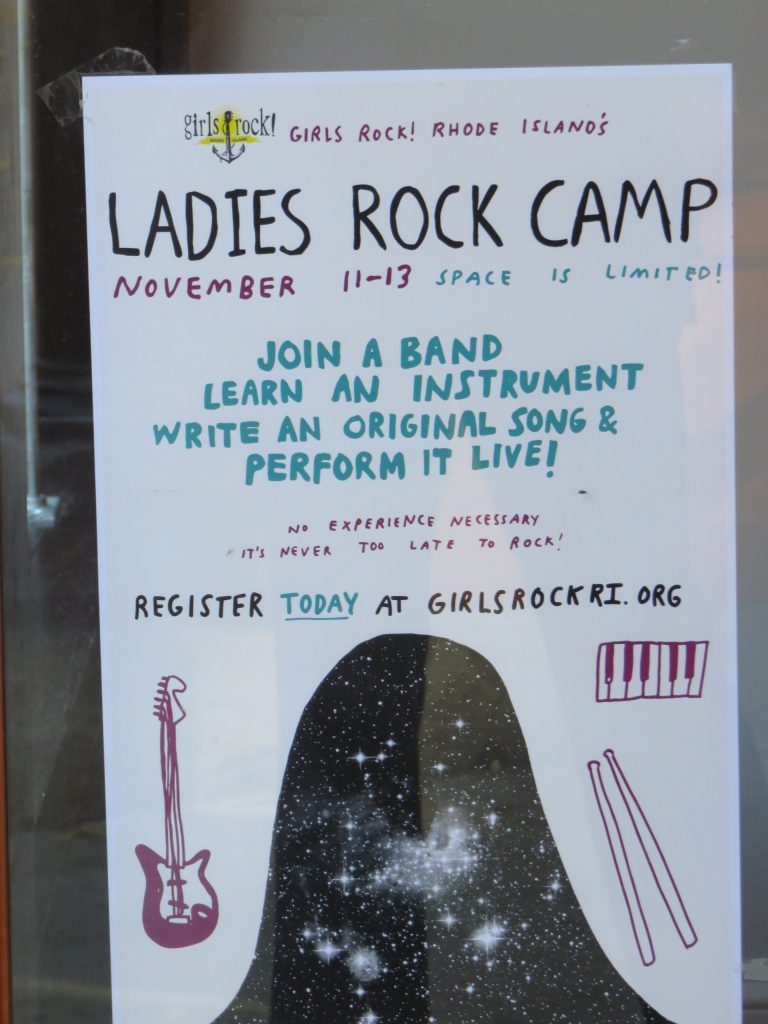 girls rock!
RHODE ISLAND
GIRLS ROCK! RHODE ISLAND'S
LADIES ROCK CAMP
NOVEMBER 11-13 SPACE IS LIMITED!
JOIN A BAND
LEARN AN INSTRUMENT
WRITE AN ORIGINAL SONG &
PERFORM IT LIVE!
NO EXPERIENCE NECESSARY
IT'S NEVER TOO LATE TO ROCK!
REGISTER TODAY AT GIRLSROCKRI.ORG